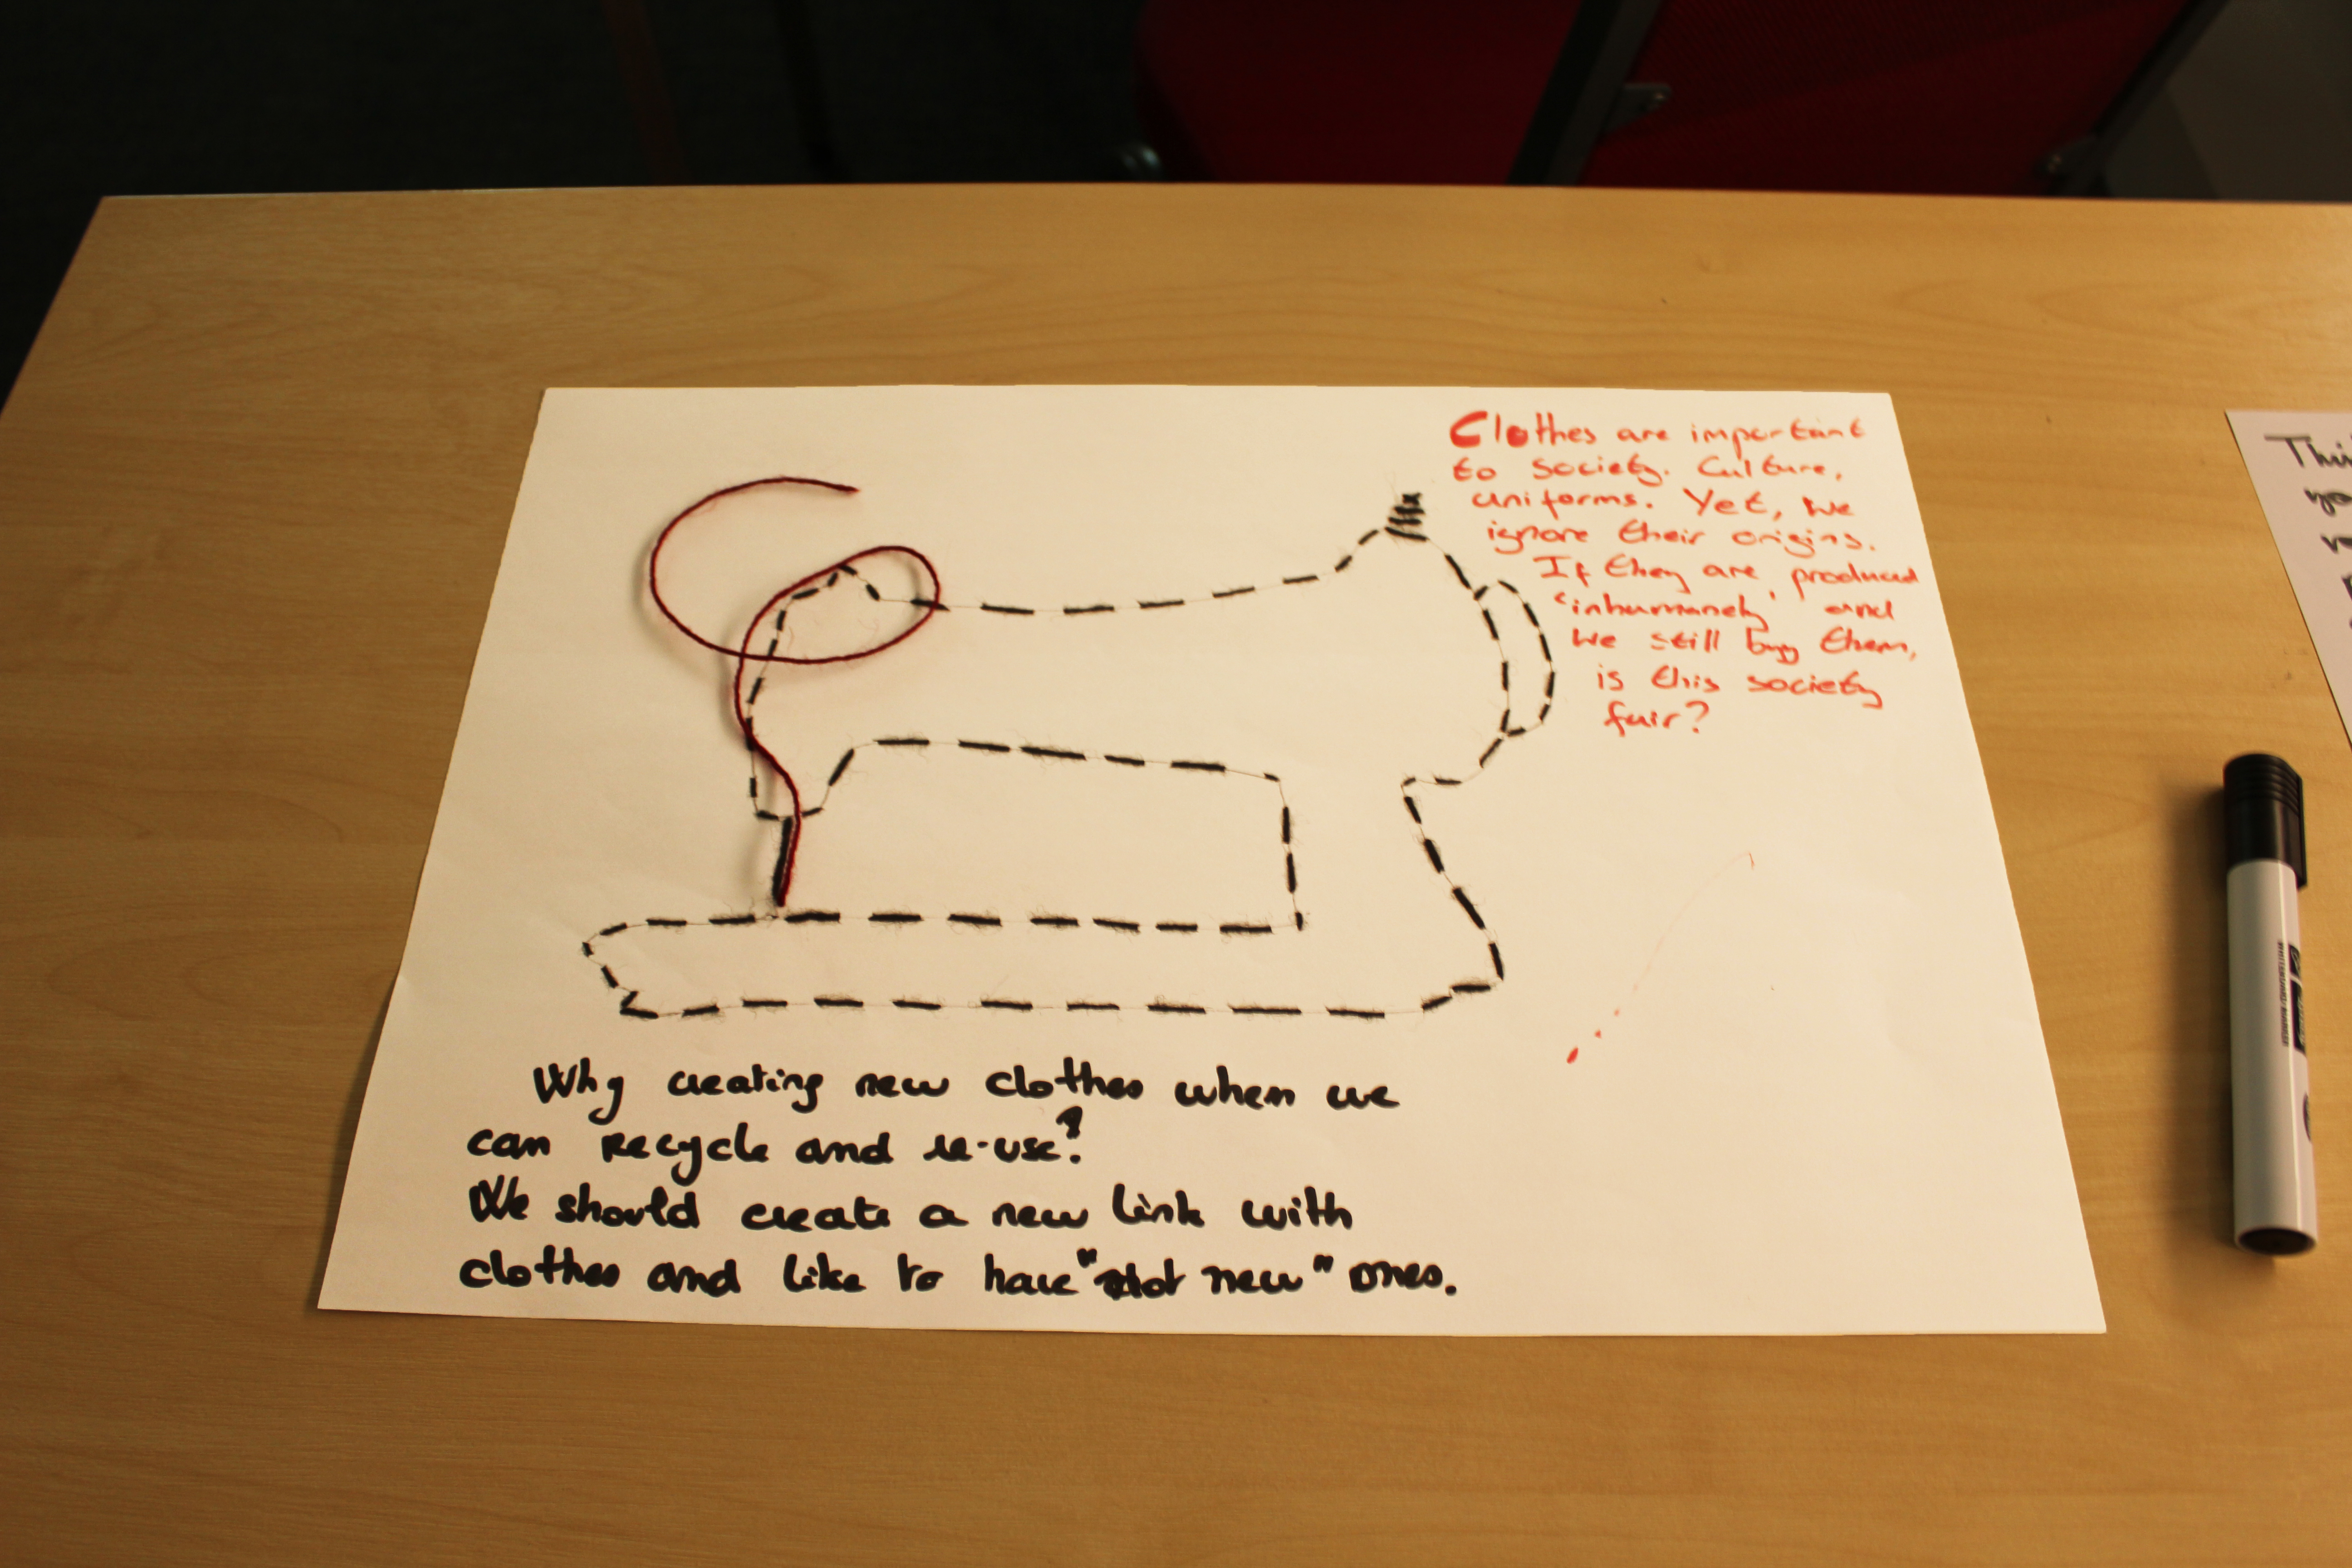 Clothes are important
to society. Culture,
uniforms. Yet, we
ignore their origins.
If they are produced
'inhumanely' and
we still buy them,
is this society
fair?
Why creating new clothes when we
can recycle and re-use?
We should create a new link with
clothes and like to have "not new" ones.
Thi
yo